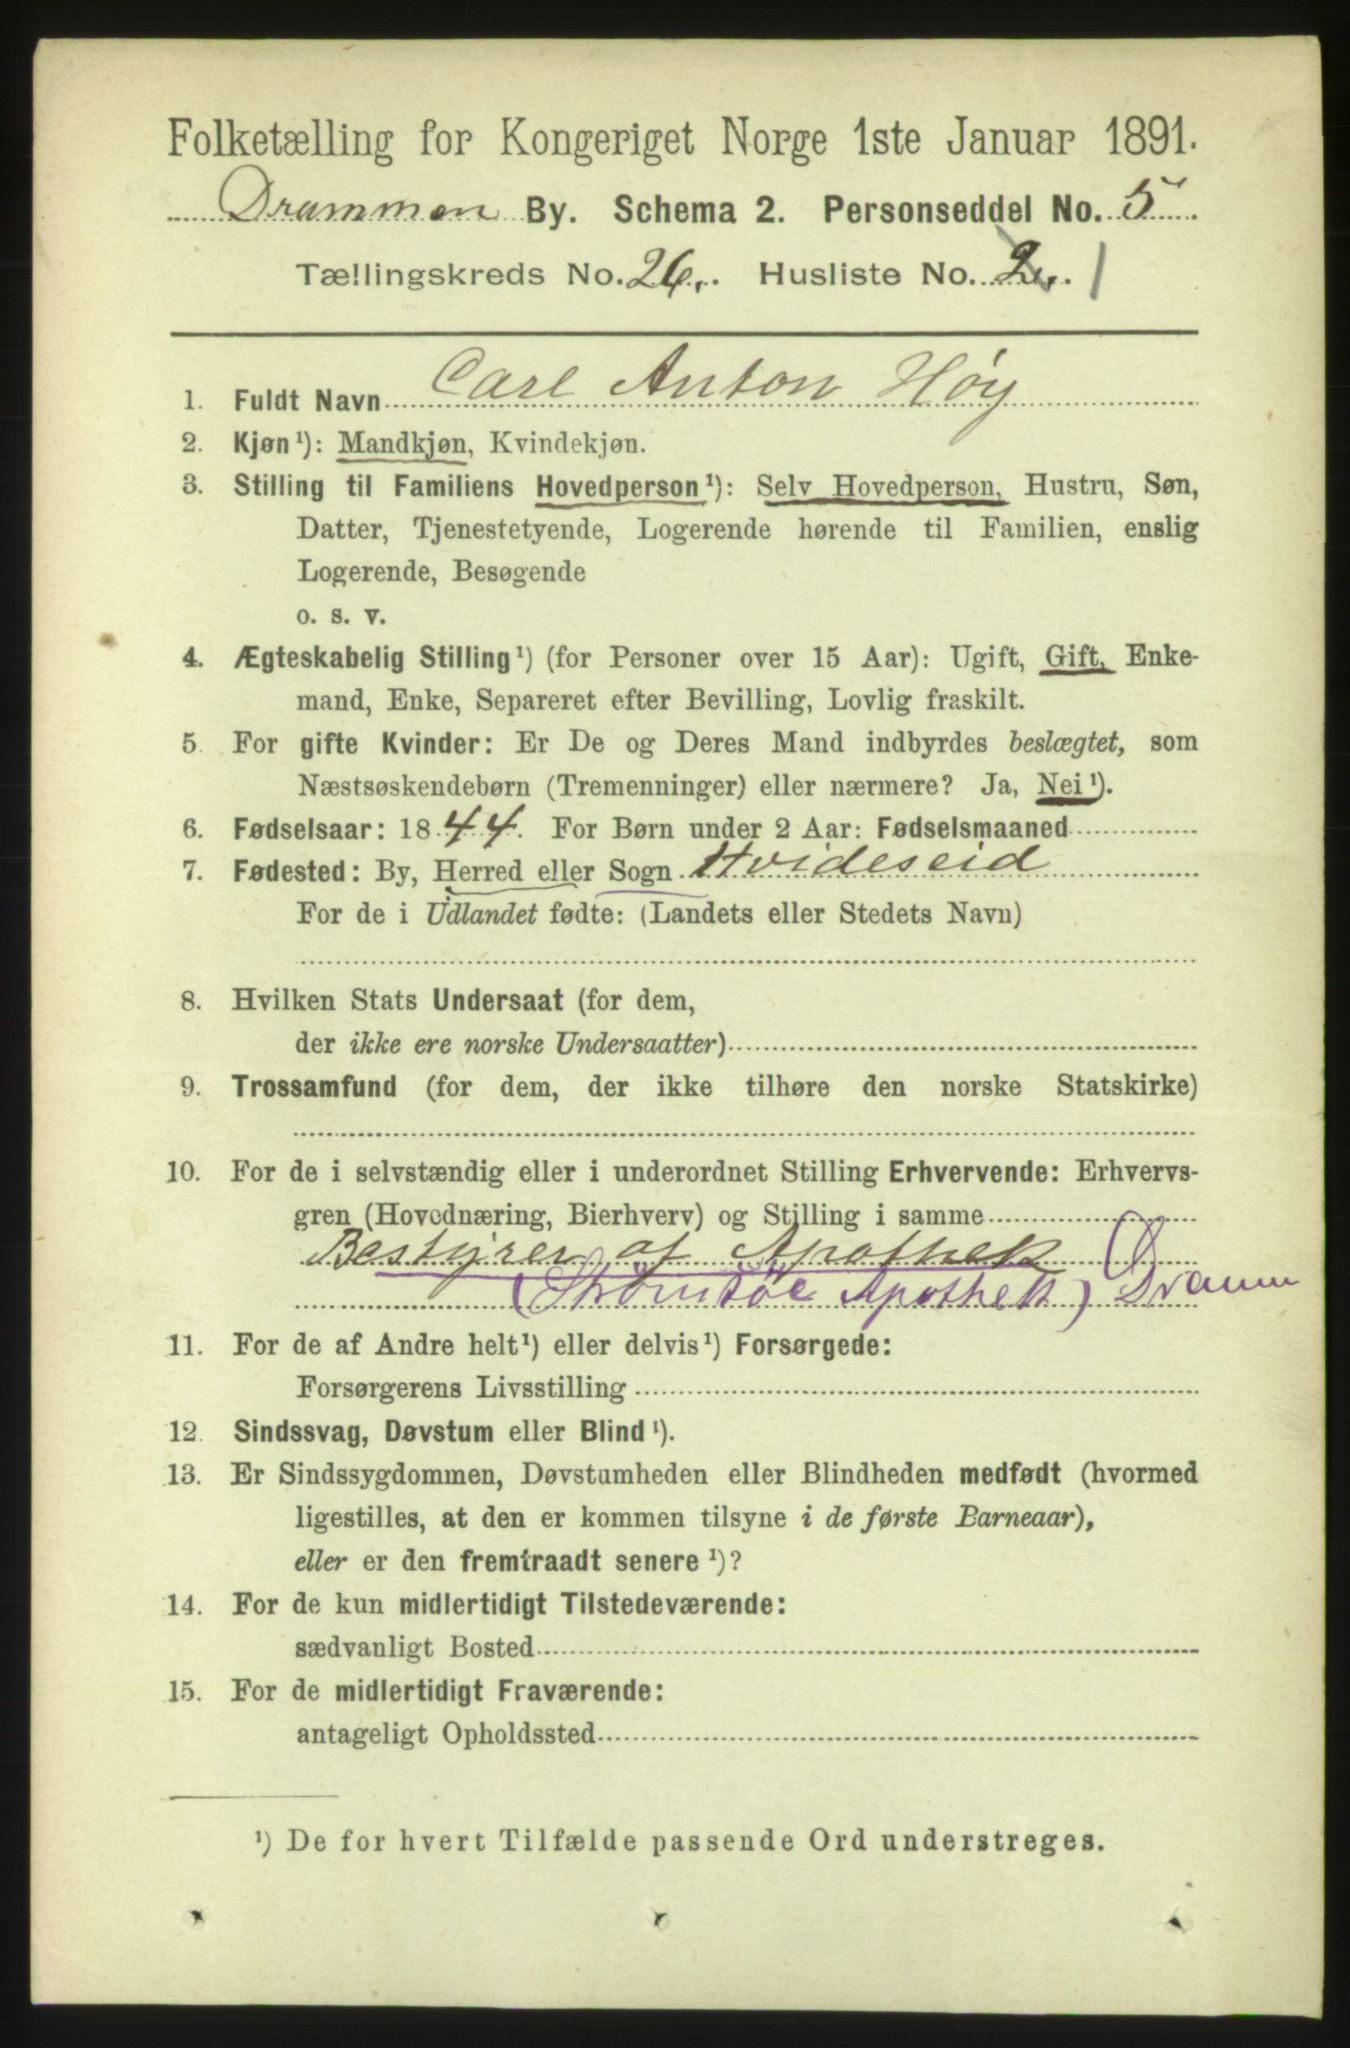 Folketælling for Kongeriget Norge 1ste Januar 1891.
Drammen By. Schema 2. Personseddel No. 5
Tællingskreds No. 26. Husliste No. 2. 1
1. Fuldt Navn Carl Anton Høy
2. Kjøn¹): Mandkjøn, Kvindekjøn.
3. Stilling til Familiens Hovedperson¹): Selv Hovedperson, Hustru, Søn,
Datter, Tjenestetyende, Logerende hørende til Familien, enslig
Logerende, Besøgende
o. s. v.
4. Ægteskabelig Stilling¹) (for Personer over 15 Aar): Ugift, Gift, Enke-
mand, Enke, Separeret efter Bevilling, Lovlig fraskilt.
5 For gifte Kvinder: Er De og Deres Mand indbyrdes beslægtet, som
Næstsøskendebørn (Tremenninger) eller nærmere? Ja, Nei¹).
6. Fødselsaar: 1844. For Børn under 2 Aar: Fødselsmaaned
7. Fødested: By, Herred eller Sogn Hvideseid
For de i Udlandet fødte: (Landets eller Stedets Navn)
8. Hvilken Stats Undersaat (for dem,
der ikke ere norske Undersaatter)
9. Trossamfund (for dem, der ikke tilhøre den norske Statskirke)
10. For de i selvstændig eller i underordnet Stilling Erhvervende: Erhvervs-
gren (Hovednæring, Bierhverv) og Stilling i samme
Bestyrer af Apothek
(Strømsøe Apothek) Dramm
11. For de af Andre helt¹) eller delvis¹) Forsørgede:
Forsørgerens Livsstilling
12. Sindssvag, Døvstum eller Blind¹).
13. Er Sindssygdommen, Døvstumheden eller Blindheden medfødt (hvormed
ligestilles, at den er kommen tilsyne i de første Barneaar),
eller er den fremtraadt senere¹)?
14. For de kun midlertidigt Tilstedeværende:
sædvanligt Bosted
15. For de midlertidigt Fraværende:
antageligt Opholdssted
¹) De for hvert Tilfælde passende Ord understreges.